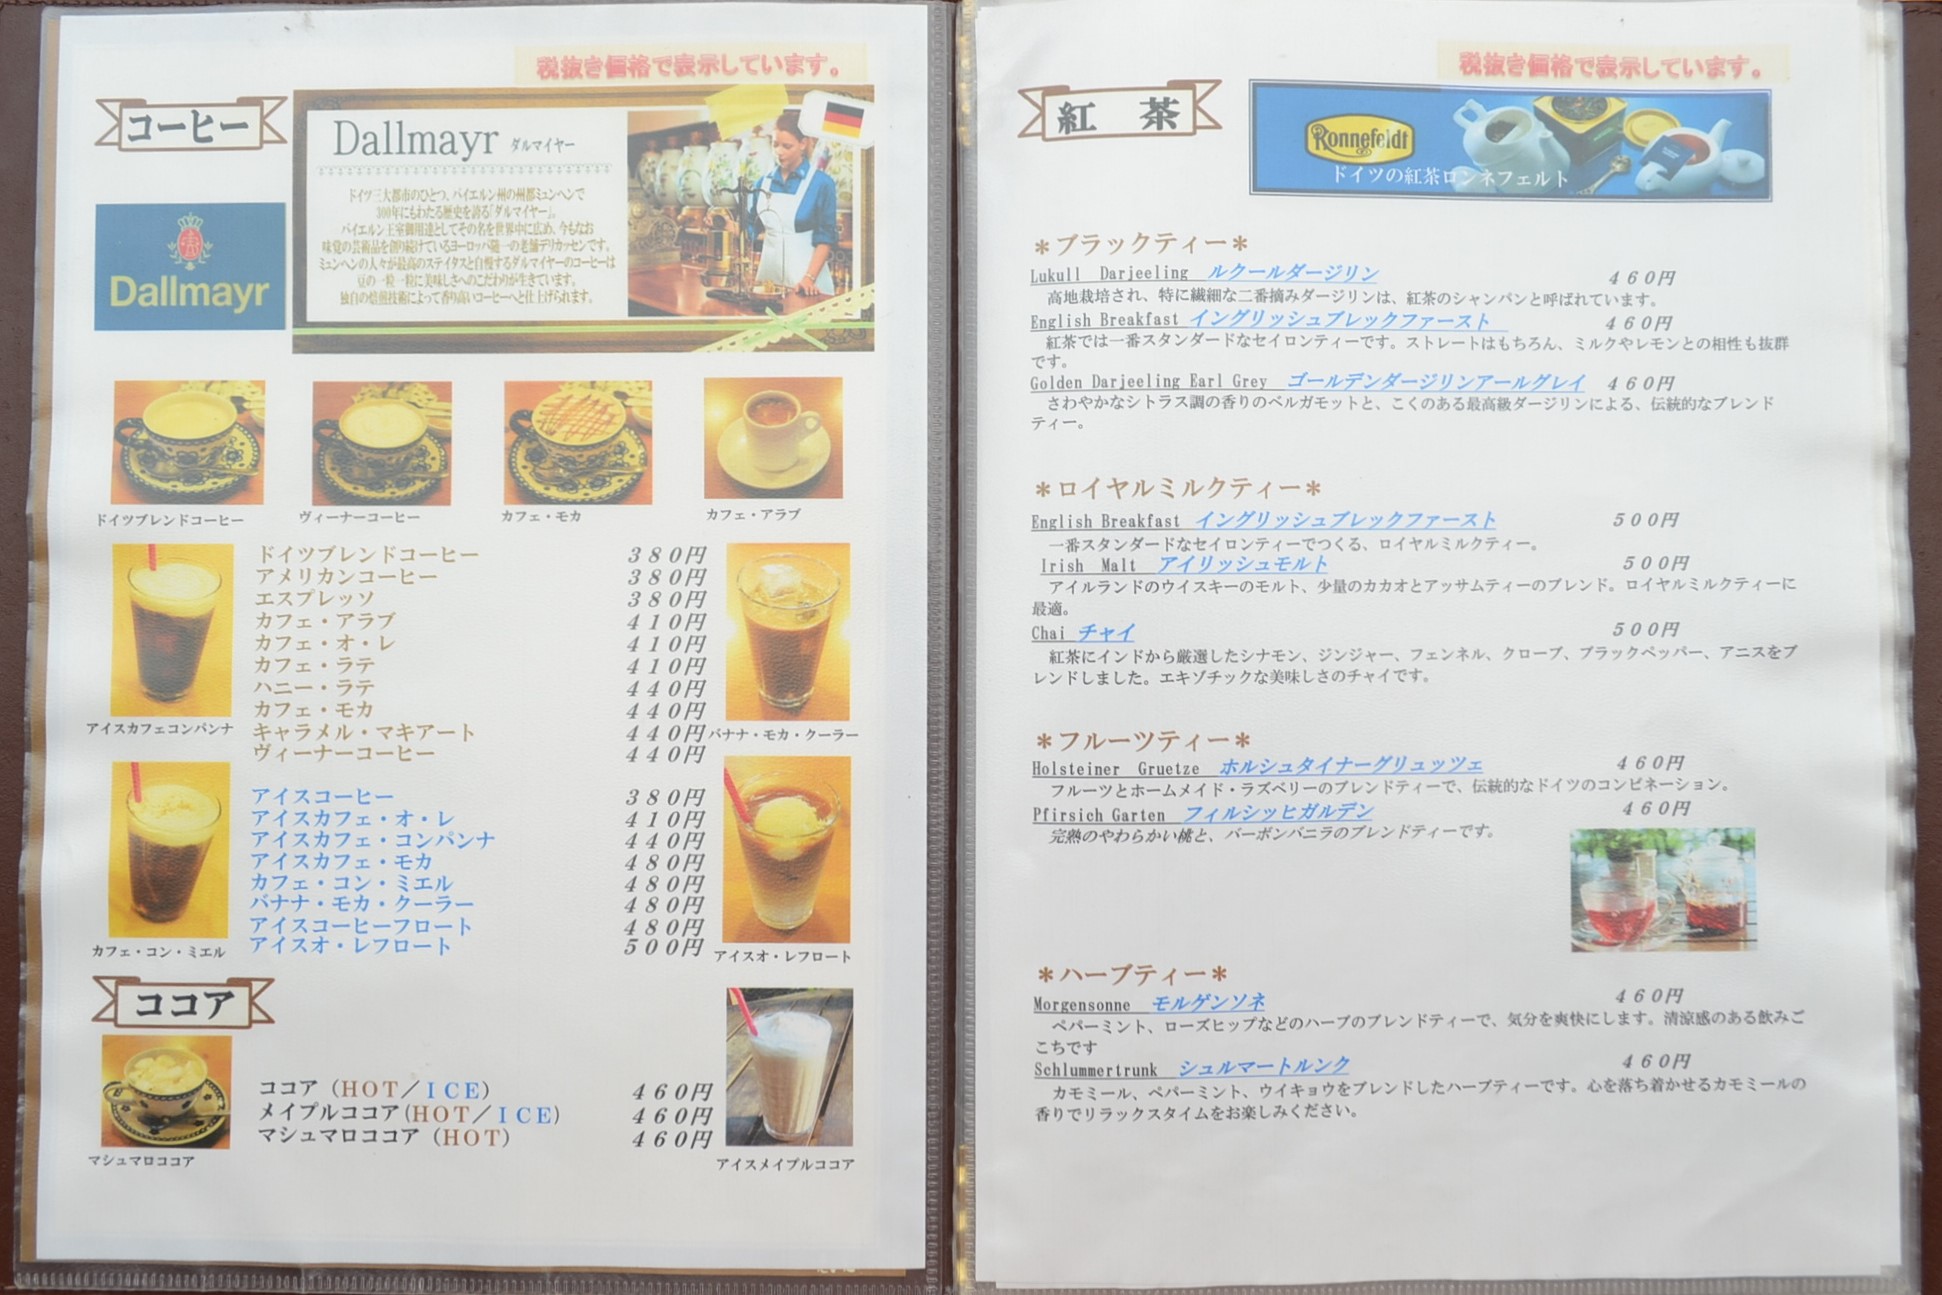 税抜き価格で表示しています。
コーヒー
Dallmayr ダルマイヤー
ドイツ三大都市のひとつ、バイエルン州の州都ミュンヘンで
300年にもわたる歴史を誇る「ダルマイヤー」。
バイエルン王室御用達としてその名を世界中に広め、今もなお
味覚の芸術品を創り続けているヨーロッパ随一の老舗デリカッセンです。
ミュンヘンの人々が最高のステイタスと自慢するダルマイヤーのコーヒーは
豆の一粒一粒に美味しさへのこだわりが生きています。
独自の焙煎技術によって香り高いコーヒーへと仕上げられます。
Dallmayr
ドイツブレンドコーヒー
ヴィーナーコーヒー
カフェ・モカ
カフェ・アラブ
ドイツブレンドコーヒー 380円
アメリカンコーヒー 380円
エスプレッソ 380円
カフェ・アラブ 410円
カフェ・オ・レ 410円
カフェ・ラテ 410円
ハニー・ラテ 440円
カフェ・モカ 440円
キャラメル・マキアート 440円
ヴィーナーコーヒー 440円
アイスカフェコンパンナ
バナナ・モカ・クーラー
アイスコーヒー 380円
アイスカフェ・オ・レ 410円
アイスカフェ・コンパンナ 440円
アイスカフェ・モカ 480円
カフェ・コン・ミエル 480円
バナナ・モカ・クーラー 480円
アイスコーヒーフロート 480円
アイスオ・レフロート 500円
カフェ・コン・ミエル
アイスオ・レフロート
ココア
ココア（HOT／ICE） 460円
メイプルココア（HOT／ICE） 460円
マシュマロココア（HOT） 460円
マシュマロココア
アイスメイプルココア
税抜き価格で表示しています。
紅 茶
Ronnefeldt
ドイツの紅茶ロンネフェルト
＊ブラックティー＊
Lukull Darjeeling ルクールダージリン 460円
高地栽培され、特に繊細な二番摘みダージリンは、紅茶のシャンパンと呼ばれています。
English Breakfast イングリッシュブレックファースト 460円
紅茶では一番スタンダードなセイロンティーです。ストレートはもちろん、ミルクやレモンとの相性も抜群
です。
Golden Darjeeling Earl Grey ゴールデンダージリンアールグレイ 460円
さわやかなシトラス調の香りのベルガモットと、こくのある最高級ダージリンによる、伝統的なブレンド
ティー。
＊ロイヤルミルクティー＊
English Breakfast イングリッシュブレックファースト 500円
一番スタンダードなセイロンティーでつくる、ロイヤルミルクティー。
Irish Malt アイリッシュモルト 500円
アイルランドのウイスキーのモルト、少量のカカオとアッサムティーのブレンド。ロイヤルミルクティーに
最適。
Chai チャイ 500円
紅茶にインドから厳選したシナモン、ジンジャー、フェンネル、クローブ、ブラックペッパー、アニスをブ
レンドしました。エキゾチックな美味しさのチャイです。
＊フルーツティー＊
Holsteiner Gruetze ホルシュタイナーグリュッツェ 460円
フルーツとホームメイド・ラズベリーのブレンドティーで、伝統的なドイツのコンビネーション。
Pfirsich Garten フィルシッヒガルデン 460円
完熟のやわらかい桃と、バーボンバニラのブレンドティーです。
＊ハーブティー＊
Morgensonne モルゲンソネ 460円
ペパーミント、ローズヒップなどのハーブのブレンドティーで、気分を爽快にします。清涼感のある飲みご
こちです
Schlummertrunk シュルマートルンク 460円
カモミール、ペパーミント、ウイキョウをブレンドしたハーブティーです。心を落ち着かせるカモミールの
香りでリラックスタイムをお楽しみください。